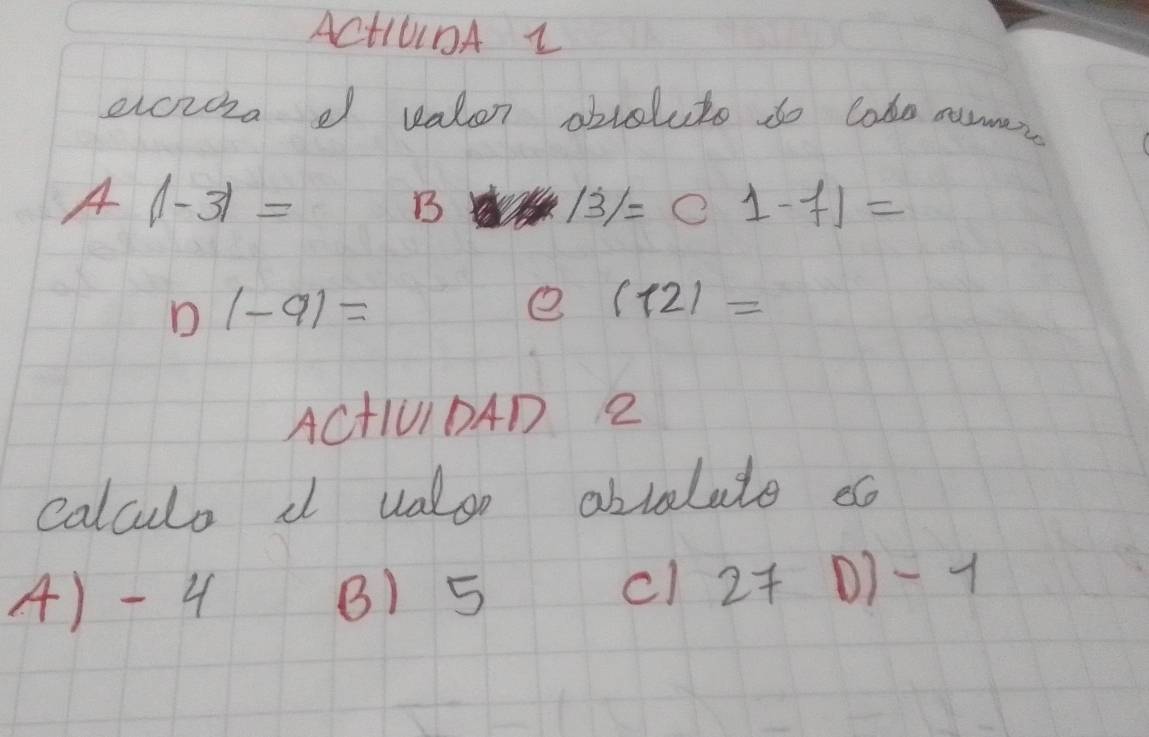 ACTIVIDA 1
escriba el valor absoluto de cada numero
A |-3| = B |3|= C |-7| =
D |-9| = e |12| =
ACTIVIDAD 2
calculo el valor absoluto
A) - 4 B) 5 C) 27 D) - 1